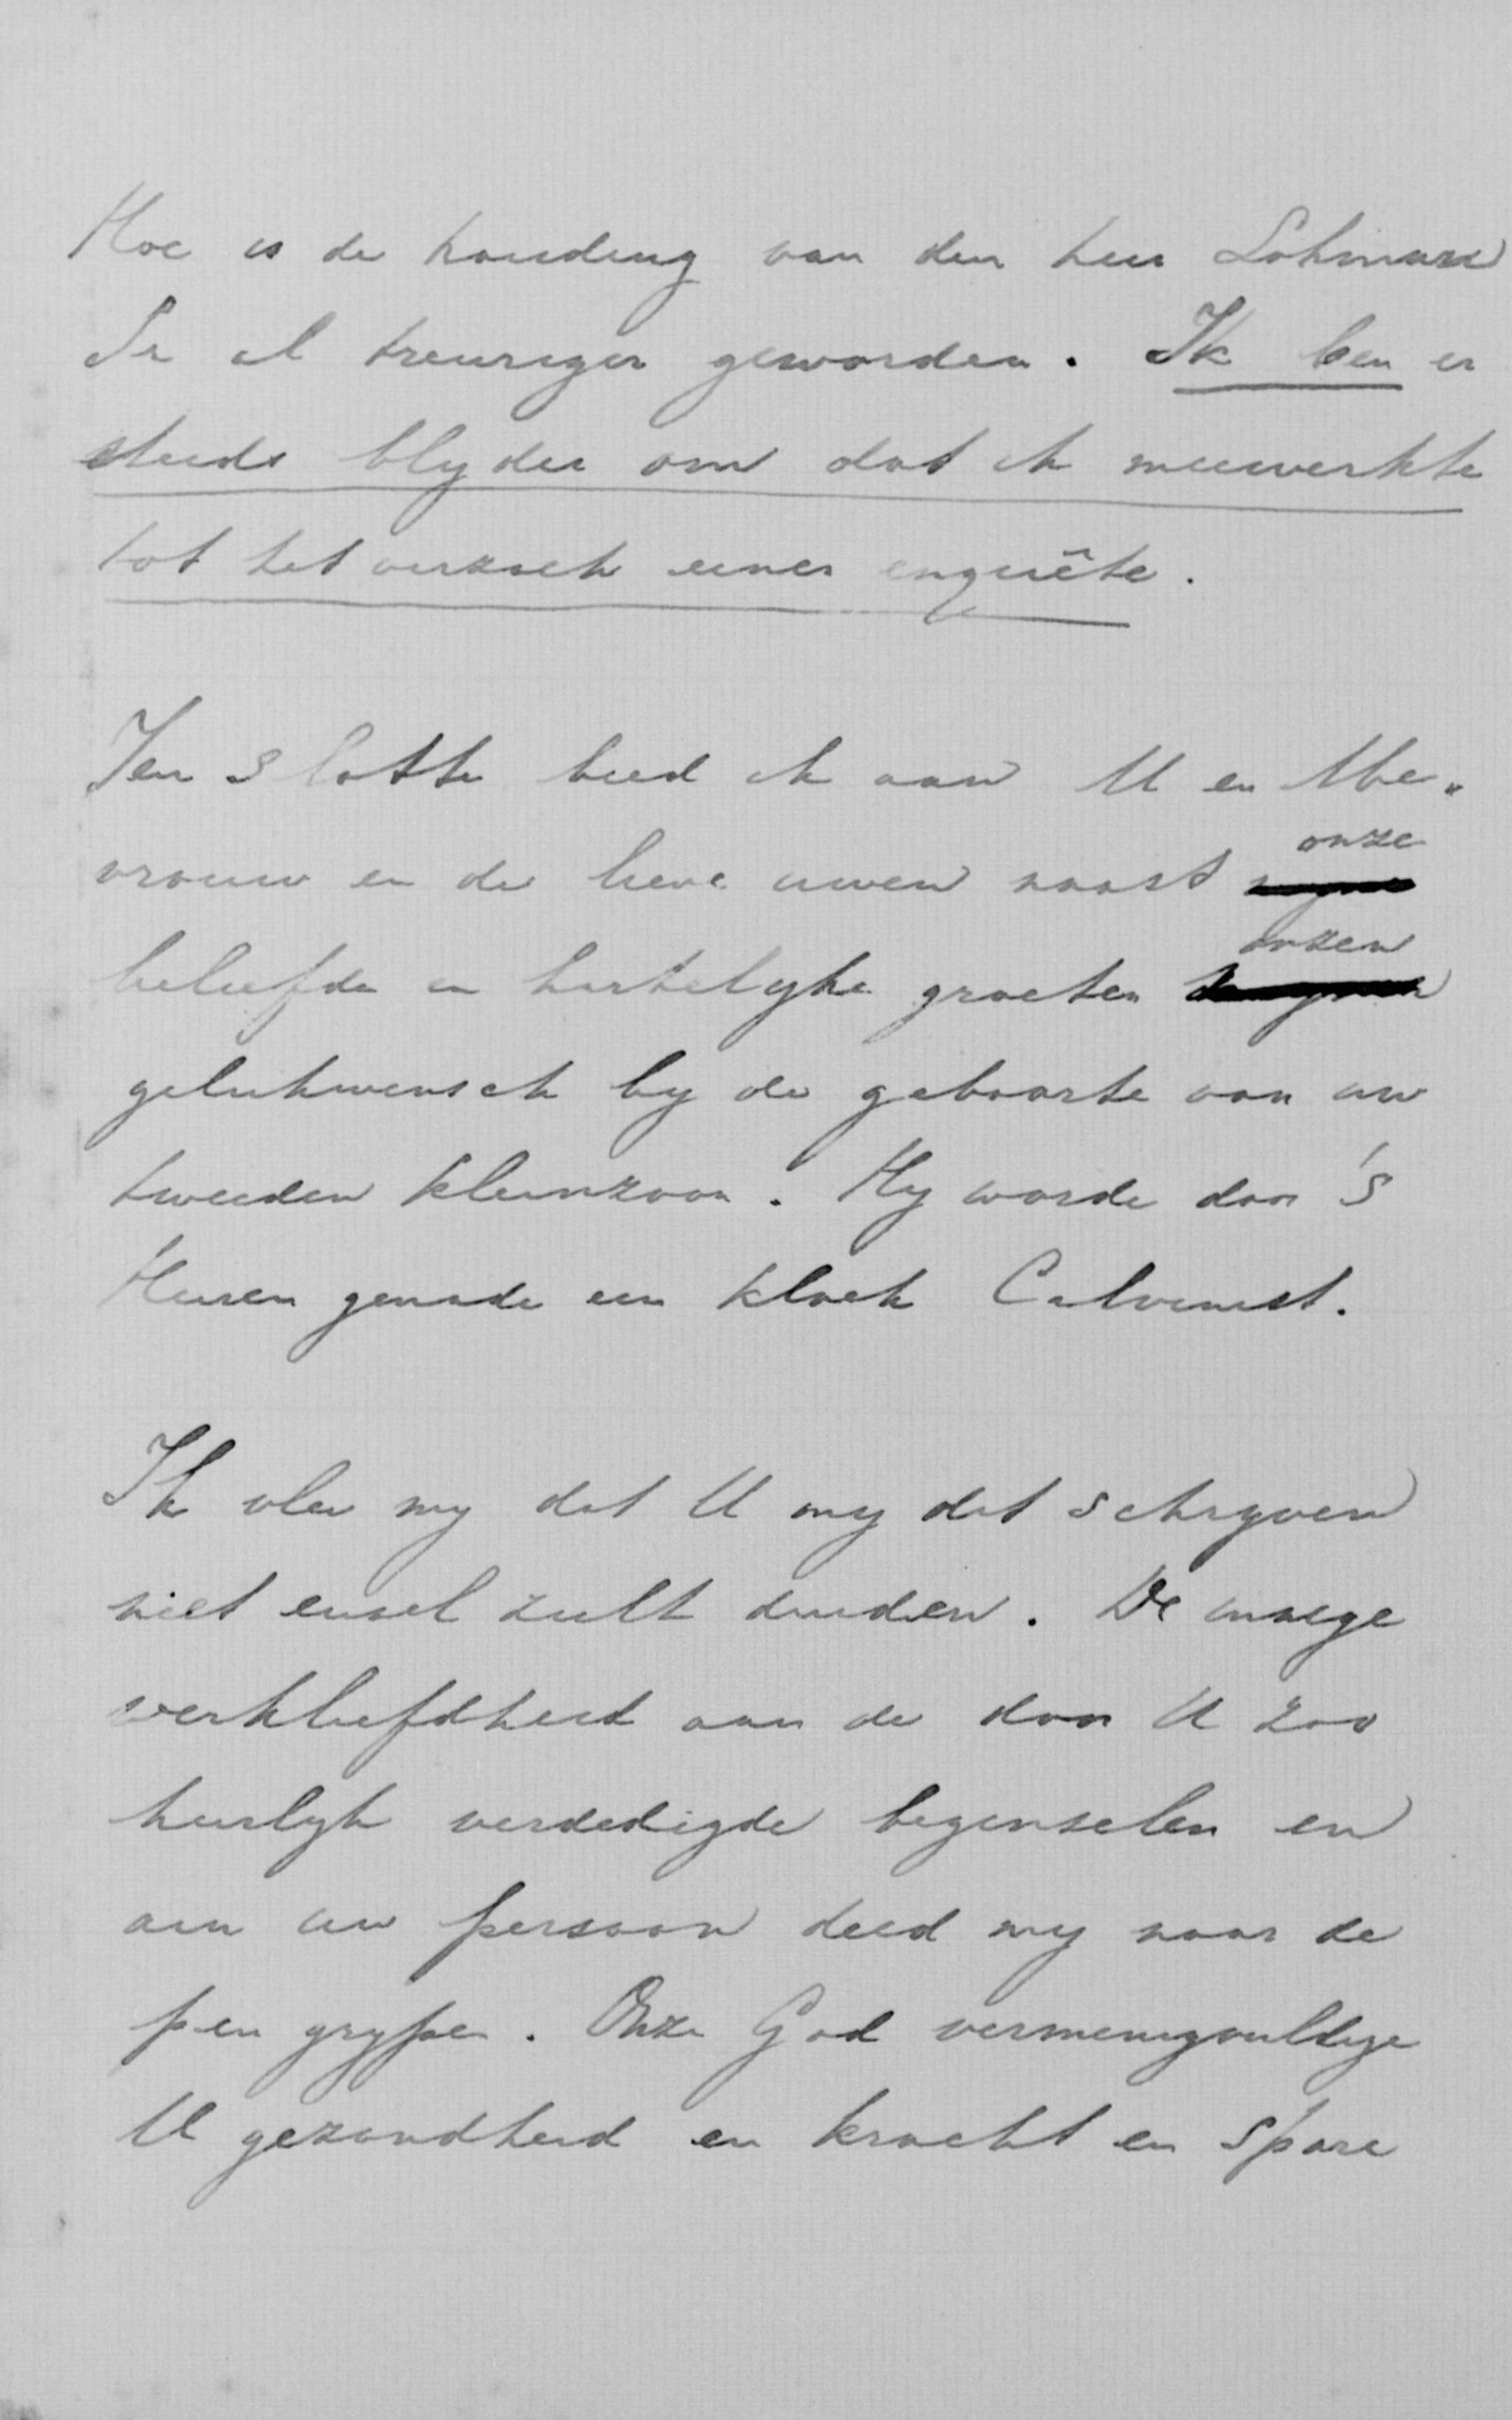 Hoe is de houding van den heer Lohman
Sr al treuriger geworden. Ik ben er
steeds blyder om dat ik meewerkte
tot het verzoek eener enquête.
Ten slotte bied ik aan U en Me-
vrouw en de lieve uwen naast
onze
beleefde en hartelyke groeten
onzen
gelukwensch by de geboorte van uw
tweeden kleinzoon. Hy worde door 's
Heeren genade een kloek Calvinist.
Ik vlei my dat U my dit schryven
niet euvel zult duiden. De innige
verkleefdheid aan de door U zoo
heerlyk verdedigde beginselen en
aan uw persoon deed my naar de
pen grypen. Onze God vermenigvuldige
U gezondheid en kracht en spare